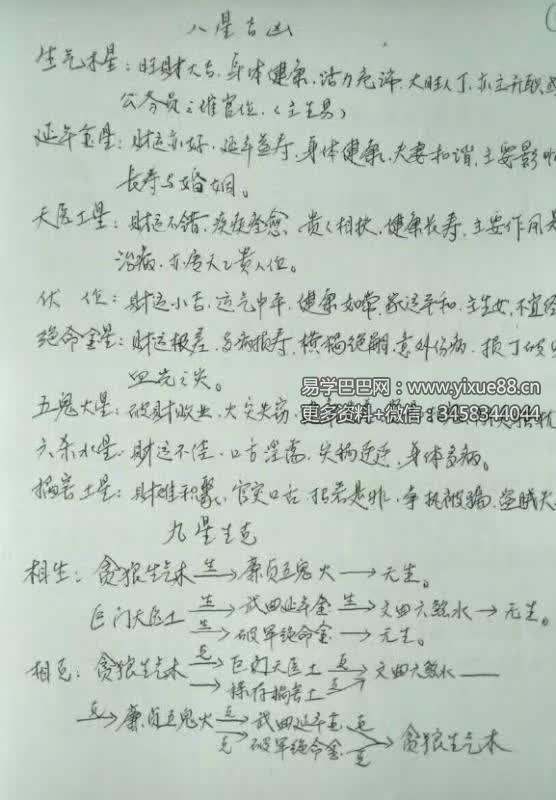 八星吉凶
生气木星：旺财大吉，身体健康，活力充沛，大旺人丁，亦主升职，
公务员之催官位。（主生男）
延年金星：财运亦好，延年益寿，身体健康，夫妻和谐，主要影响
长寿与婚姻。
天医土星：财运不错，疾疾痊愈，贵人相扶，健康长寿，主要作用是
治病，亦为天乙贵人位。
伏 位：财运小吉，运气中平，健康如常，家运平和，主生女，不宜
绝命金星：财运极差，多病损寿，横祸绝嗣，意外伤病，损丁破
血光之灾。
五鬼火星：破财败业，火灾失窃，
易学巴巴网：www.yixue88.cn
更多资料+微信：3458344044
六杀水星：财运不佳，口舌淫荡，失祸连连，身体多病。
祸害土星：财难积聚，官灾口舌，招惹是非，争执被骗，盗贼
九星生克
相生：贪狼生气木 生→ 廉贞五鬼火 → 无生。
巨门天医土 生→ 武曲延年金 生→ 文曲六煞水 → 无生。
生→ 破军绝命金 → 无生。
相克：贪狼生气木 克→ 巨门天医土 克→ 文曲六煞水 —
→ 禄存祸害土 克→
克→ 廉贞五鬼火 克→ 武曲延年金 克
克→ 破军绝命金 克→ 贪狼生气木